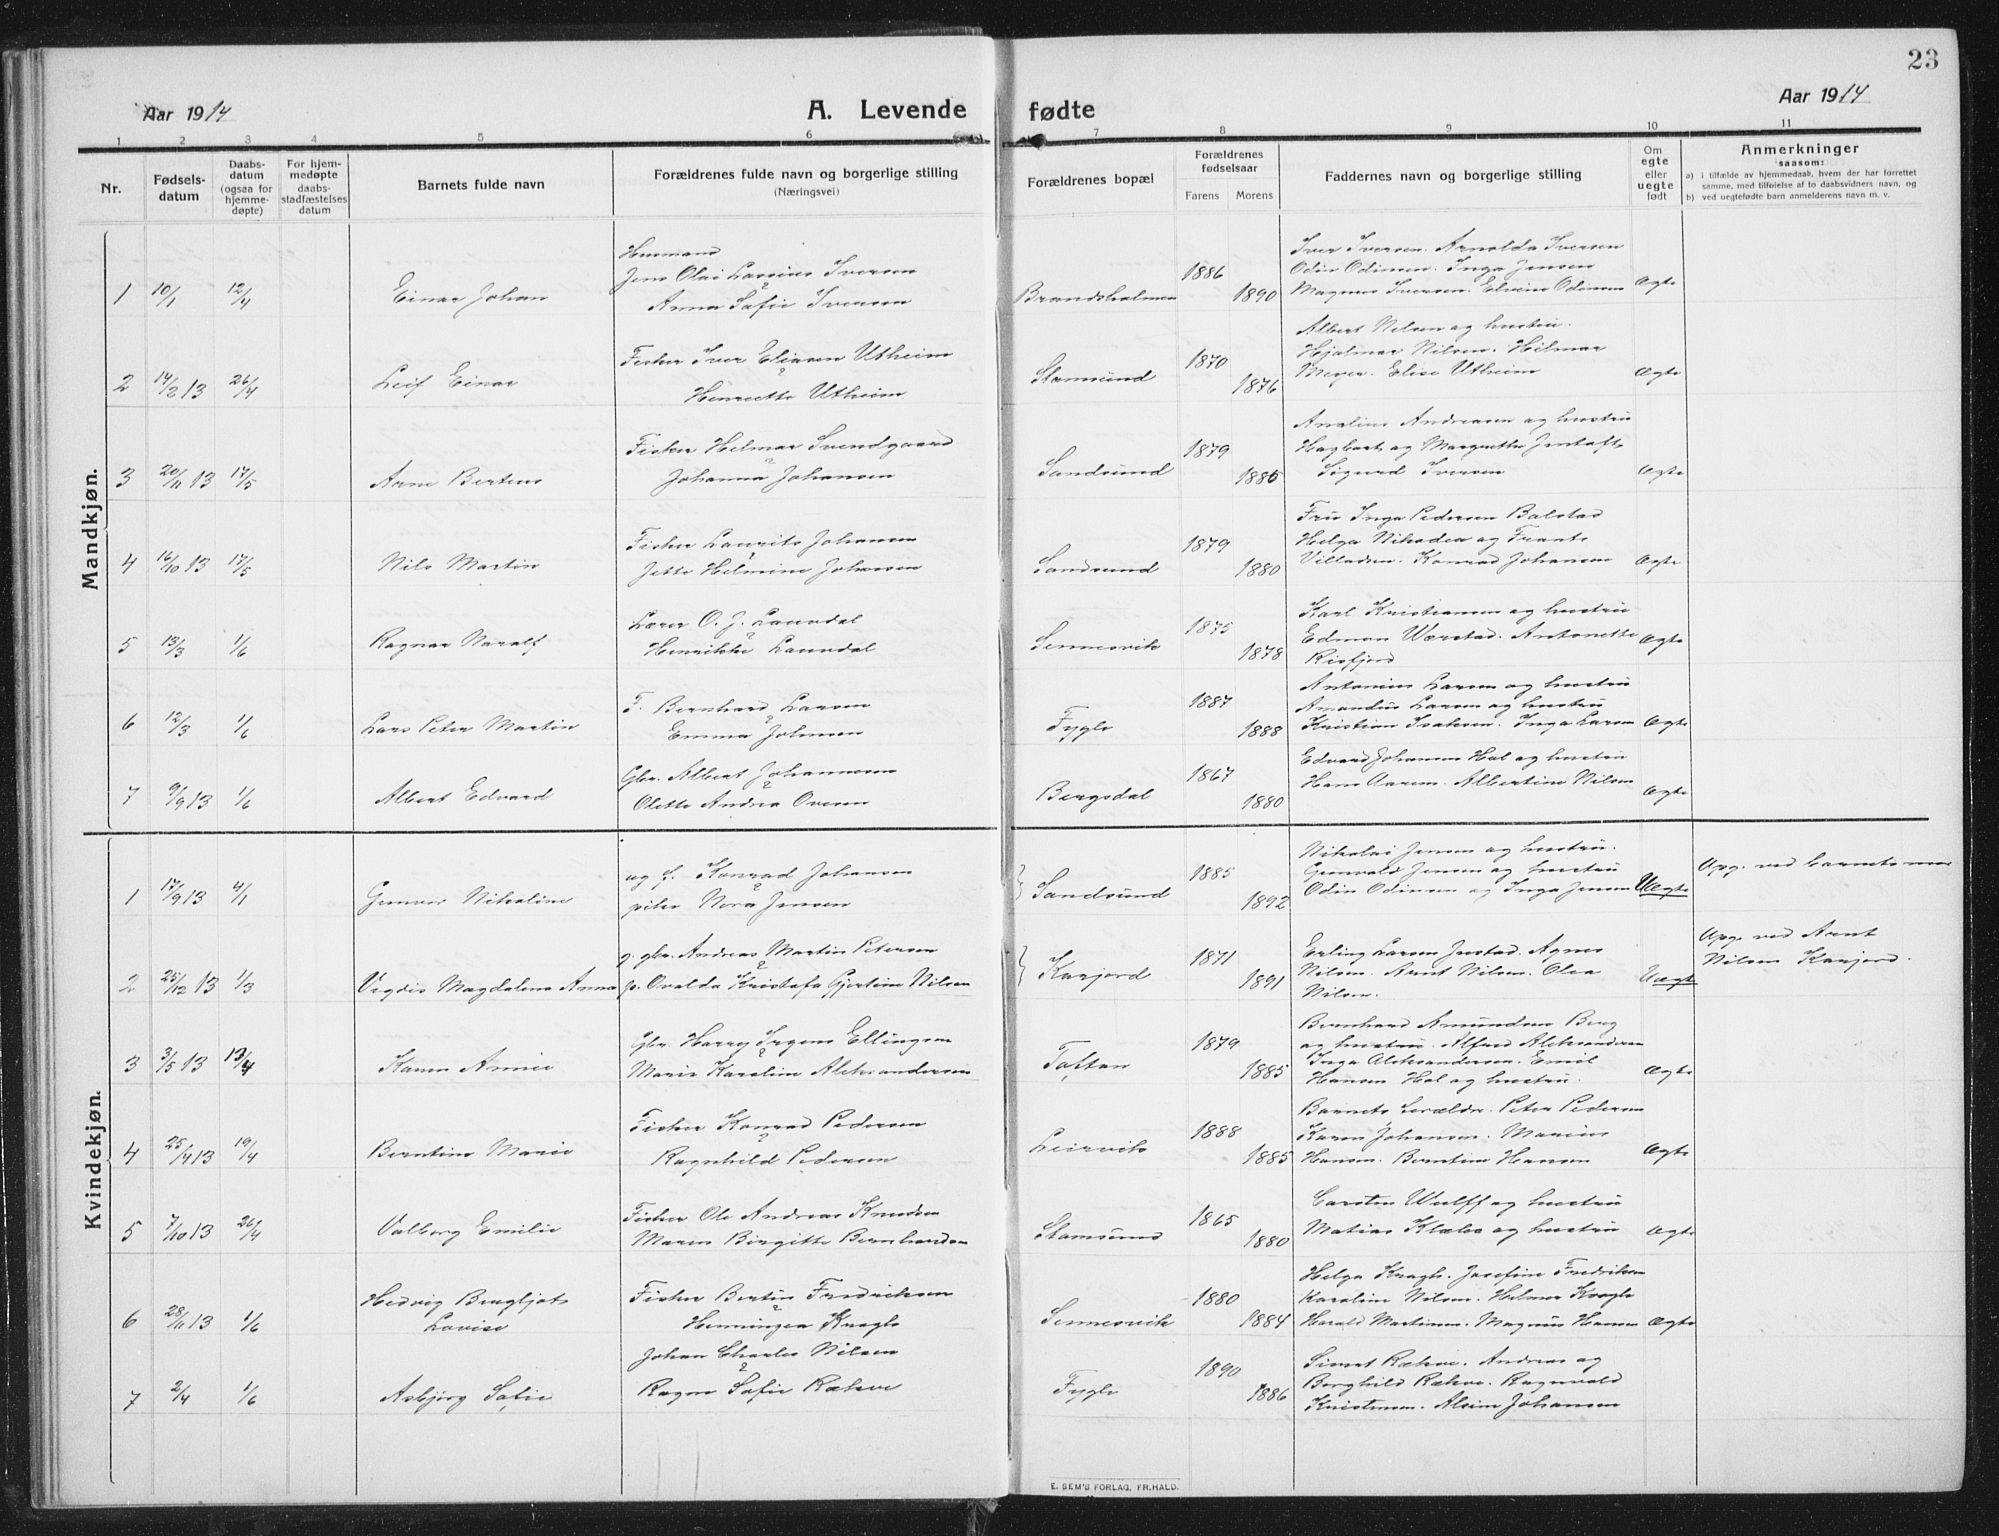 23
Aar 1914
A. Levende fødte
Aar 1914
1 2 3 4 5 6 7 8 9 10 11
Nr.
Fødsels-
datum
Daabs-
datum
(ogsaa for
hjemme-
døpte)
For hjem-
medøpte
daabs-
stadfæstelses
datum
Barnets fulde navn
Forældrenes fulde navn og borgerlige stilling
(Næringsvei)
Forældrenes bopæl
Forældrenes
fødselsaar
Farens Morens
Faddernes navn og borgerlige stilling
Om
egte
eller
uegte
født
Anmerkninger
saasom:
a) i tilfælde av hjemmedaab, hvem der har forrettet
samme, med tilføielse af to daabsvidners navn, og
b) ved uegtefødte barn anmelderens navn m. v.
Mandkjøn.
Husmand
Jens Olai Lassius Iversen
1 10/1 12/4 Einar Johan
Anna Sofie Iversen
Brandsholmen 1886 1890
Iver Iversen. Arnolda Iversen
Odin Odinsen. Inga Jensen
Magnus Iversen. Elvine Odinsen
Ægte
2 14/2 13 26/4 Leif Einar
Fisker Iver Eliasen Utheim
Henriette Utheim
Stamsund 1870 1876
Albert Nilsen og hustru.
Hjalmar Nilsen. Hilmar
Meyer. Elise Utheim
Ægte
3 20/11 13 17/5 Arne Berteus
Fisker Helmar Svendgaard
Johanna Johansen
Sandsund 1879 1885
Analius Andreasen og hustru
Hagbart og Margrethe
Sigurd Iversen
Ægte
4 16/10 13 17/5 Nils Martin
Fisker Laurits Johansen
Jette Helmine Johansen
Sandsund 1879 1880
Fru Inga Pedersen Balstad
Helga Nikodea og Frants
Villadsen. Konrad Johansen
Ægte
5 13/3 1/6 Ragnar Naralf
Lærer O. J. Laurdal
Henrikke Laurdal
Sennesvik 1875 1878
Karl Kristiansen og hustru
Edmon Værstad. Antonette
Risfjord
Ægte
6 12/3 1/6 Lars Peter Martin
F. Bernhard Larsen
Emma Johnsen
Fygle 1887 1888
Antonius Larsen og hustru
Amandus Larsen og hustru
Kristian Isaksen. Inga Larsen
Ægte
7 9/9 13 1/6 Albert Edvard
Gbr. Albert Johannesen
Olette Andrea Ovesen
Bergsdal 1867 1880
Edvard Johansen Hol og hustru
Hans Aasen. Albertine Nilsen
Ægte
Kvindekjøn.
1 17/9 13 4/1 Gunvor Nikoline
ug f. Konrad Johansen
pike Nora Jensen
Sandsund 1885 1892
Nikolai Jensen og hustru.
Gunvald Jensen og hustru
Odin Odinsen og Inga Jensen
Uægte
Opg. ved barnets mor
2 25/12 13 1/3 Vigdis Magdalena Anna
g. gbr. Andreas Martin Petersen
p. Ovalda Kristofa Gjertine Nilsen
Kaejord 1871 1891
Erling Larsen Justad. Agnes
Nilsen. Arnt Nilsen. Olea
Nilsen.
Uægte
Opg. ved Arnt
Nilsen Kaejord.
3 3/5 13 13/4 Karen Annie
Gbr. Harry Irgens Ellingsen
Marie Karoline Aleksandersen
Toftan 1879 1885
Bernhard Amundsen Berg
og hustru. Alfred Aleksandersen
Inga Aleksandersen. Emil
Hansen Hol og hustru.
Ægte
4 25/4 13 19/4 Berntine Marie
Fisker Konrad Pedersen
Ragnhild Pedersen
Leirvik 1888 1885
Barnets forældre. Peter Pedersen
Karen Johansen. Marius
Hansen. Berntine Hansen
Ægte
5 7/10 13 26/4 Valborg Emilie
Fisker Ole Andreas Knudsen
Maren Birgitte Bernhardsen
Stamsund 1865 1880
Carsten Wulff og hustru
Matias Klæbo og hustru
Ægte
6 28/11 13 1/6 Hedvig Bergljot
Lovise
Fisker Bertin Fredriksen
Henningea Kragh
Sennesvik 1880 1884
Helga Kragh. Josefine Fredriksen
Karoline Nilsen. Helmer Kragh
Harald Martinsen. Magnus Hansen
Ægte
7 2/4 1/6 Asbjørg Sofie
Johan Charles Nilsen
Ragna Sofie Rækve
Fygle 1890 1886
Sivert Rækve. Andreas og
Borghild Rækve. Ragnvald
Kristensen. Alvine Johansen
E. SEM'S FORLAG, FR.HALD.